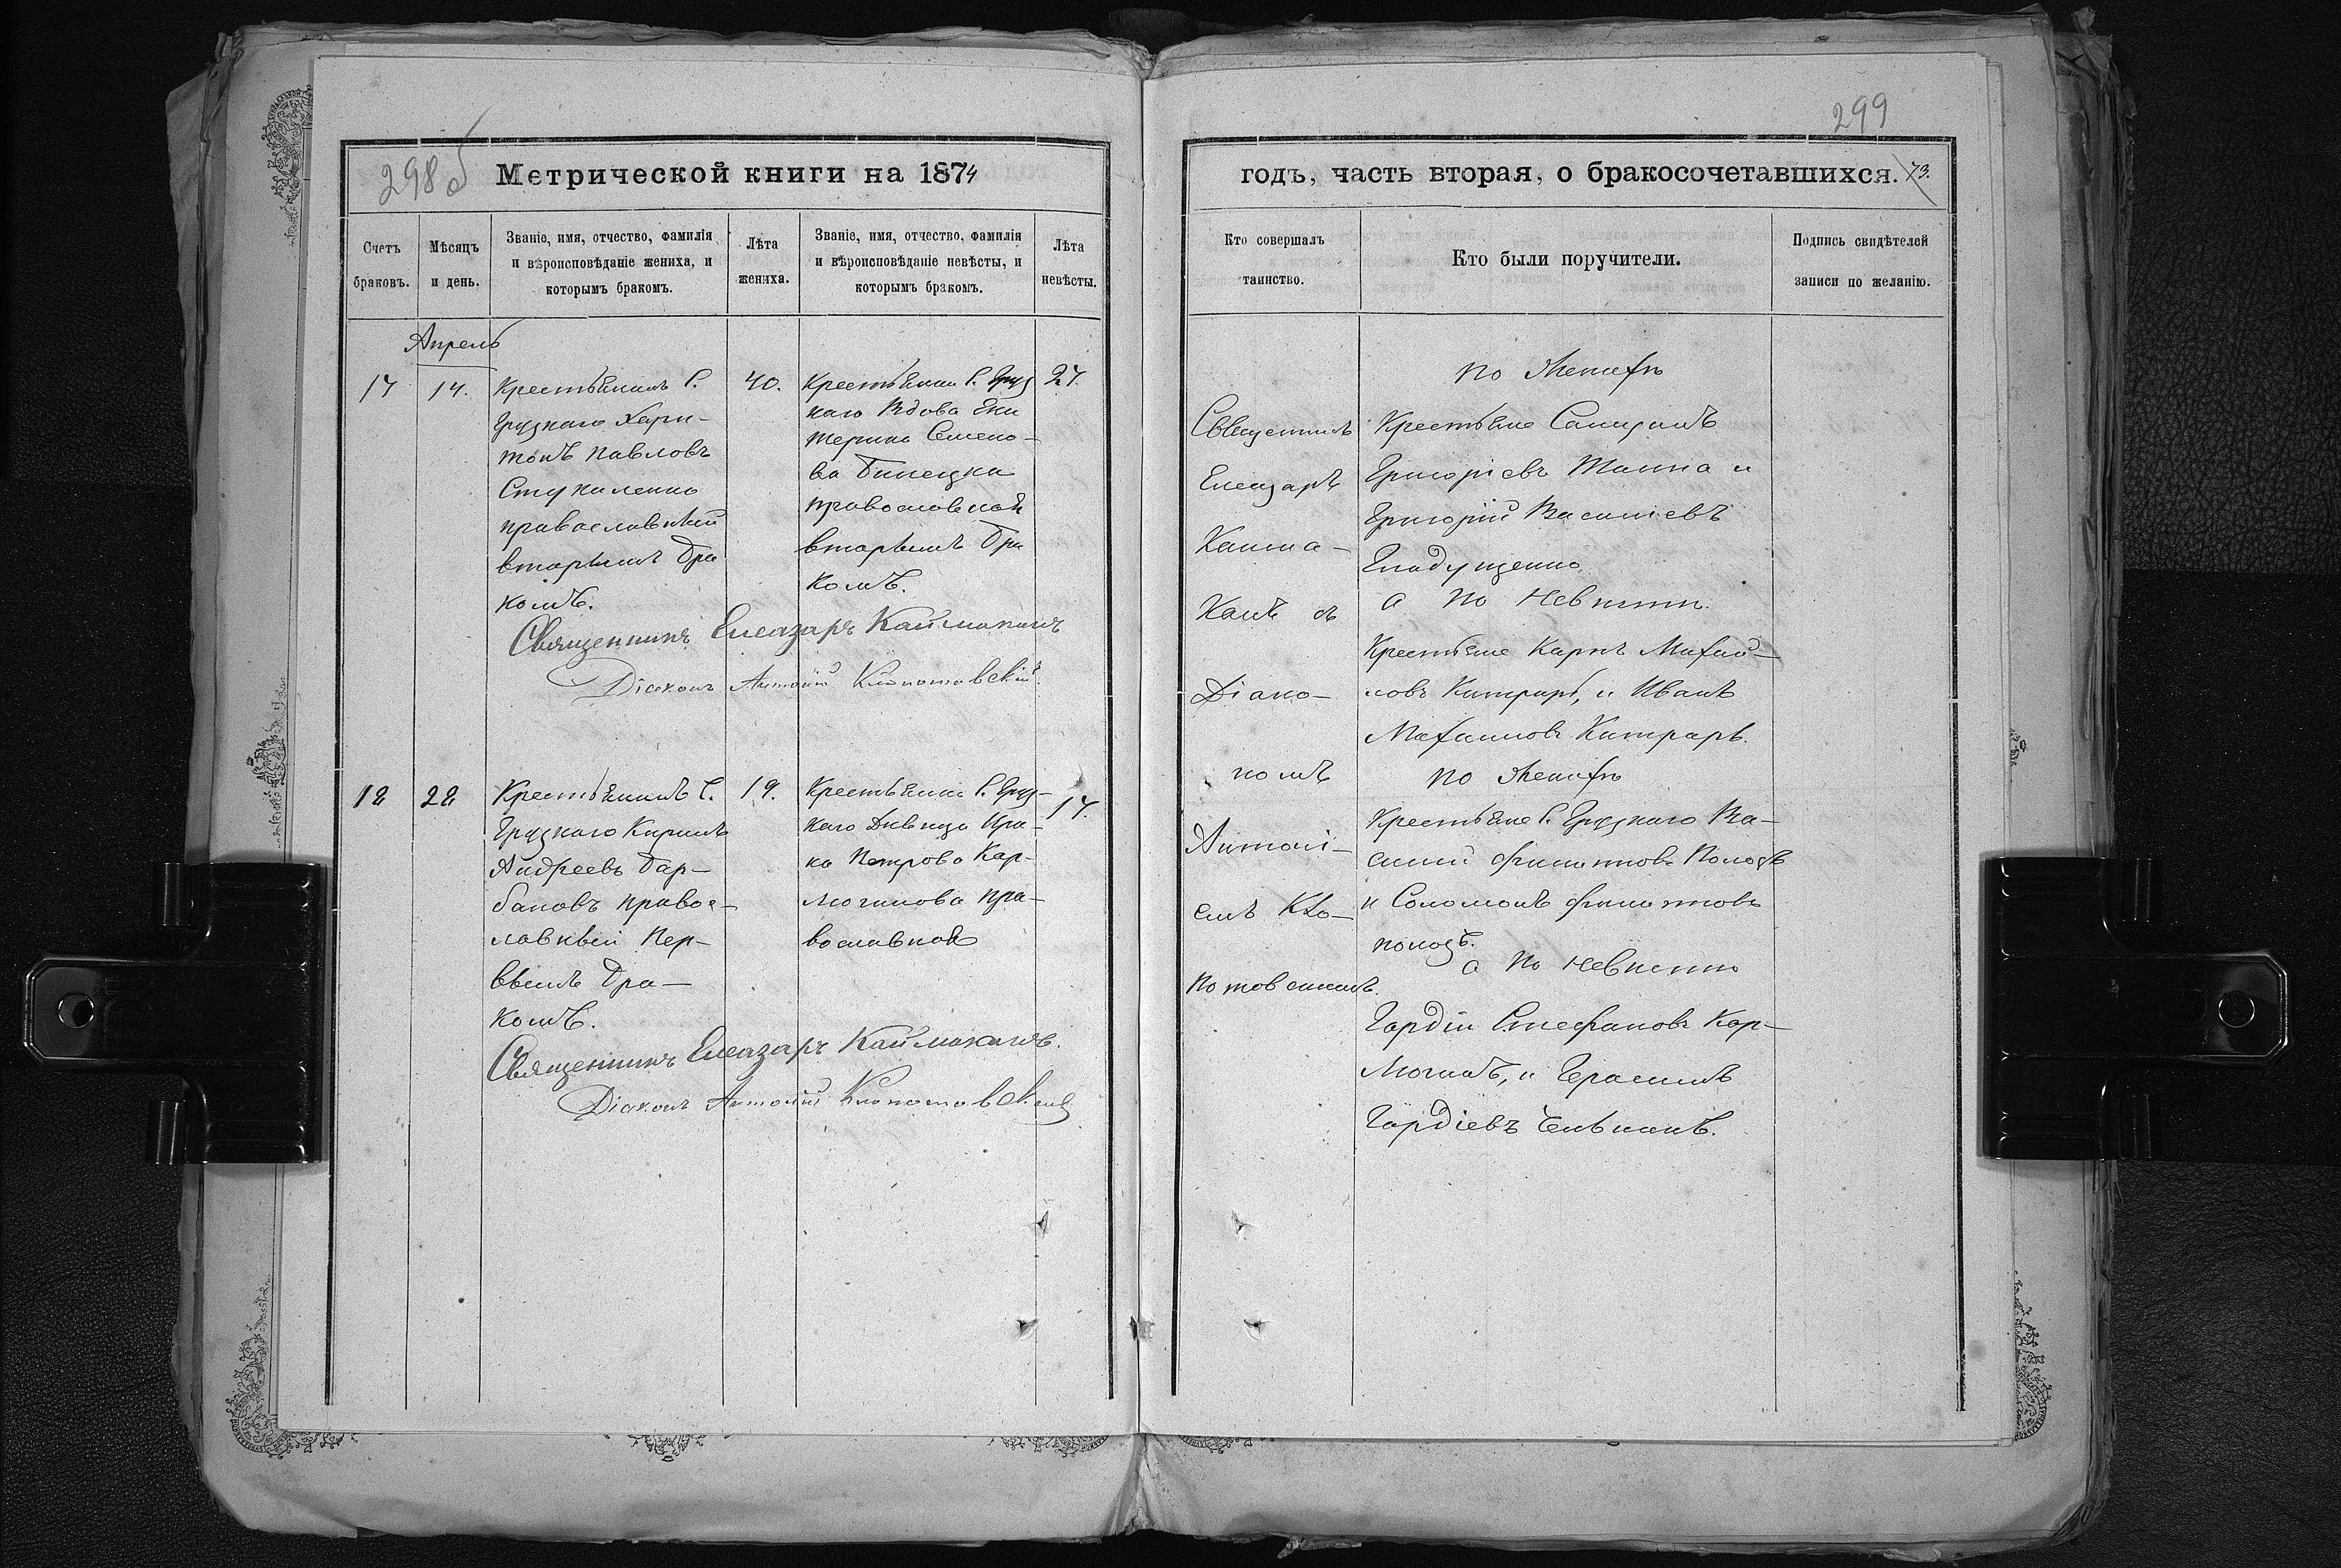 298б
Метрической книги на 1874
Счетъ браковъ.
Мѣсяцъ и день.
Званіе, имя, отчество, фамилія и вѣроисповѣданіе жениха, и которымъ бракомъ.
Лѣта жениха.
Званіе, имя, отчество, фамилія и вѣроисповѣданіе невѣсты, и которымъ бракомъ.
Лѣта невѣсты.
Апрель
17
14.
Крестьянинъ С.
Грузкаго Хари-
тонъ Павловъ
Стукаленко
православный
вторымъ бра
комъ.
40.
Крестьянка С. Груз
каго Вдова Ека
терина Семено-
ва
православная
вторымъ бра
комъ.
27.
Священникъ Елеазаръ Каймаканъ
Діаконъ Антоній Клопотовскій
18
28
Крестьянинъ С.
Грузкаго Кирилъ
Андреевъ Бар-
бановъ правос-
лавный пер-
вымъ бра-
комъ.
19.
Крестьянка С. Груз-
каго Дѣвица Ира-
ка Петрова Кар-
лючикова пра-
вославная
17.
Священникъ Елеазаръ Каймаканъ.
Діаконъ Антоній Клопотовскій
299
годъ, часть вторая, о бракосочетавшихся. 73.
Кто совершалъ таинство.
Кто были поручители.
Подпись свидѣтелей записи по желанію.
Священникъ
Елеазаръ
Кайма-
Канъ съ
Діако-
номъ
Антоні-
емъ Кло-
потовскимъ.
по Жениху
Крестьяне Самуилъ
Григоріевъ и
Григорій Василіевъ
Гладущенко
а по Невѣсты.
Крестьяне Карпъ Михай-
ловъ Китраръ, и Иванъ
Михаиловъ Китраръ.
по Жениху
Крестьяне С. Грузкаго Ва-
силій Филиповъ Полозъ
и Соломонъ Филиповъ
полозъ.
а по Невѣсты
Гордій Стефановъ Кар-
Лючикъ, и Герасимъ
Гордіевъ